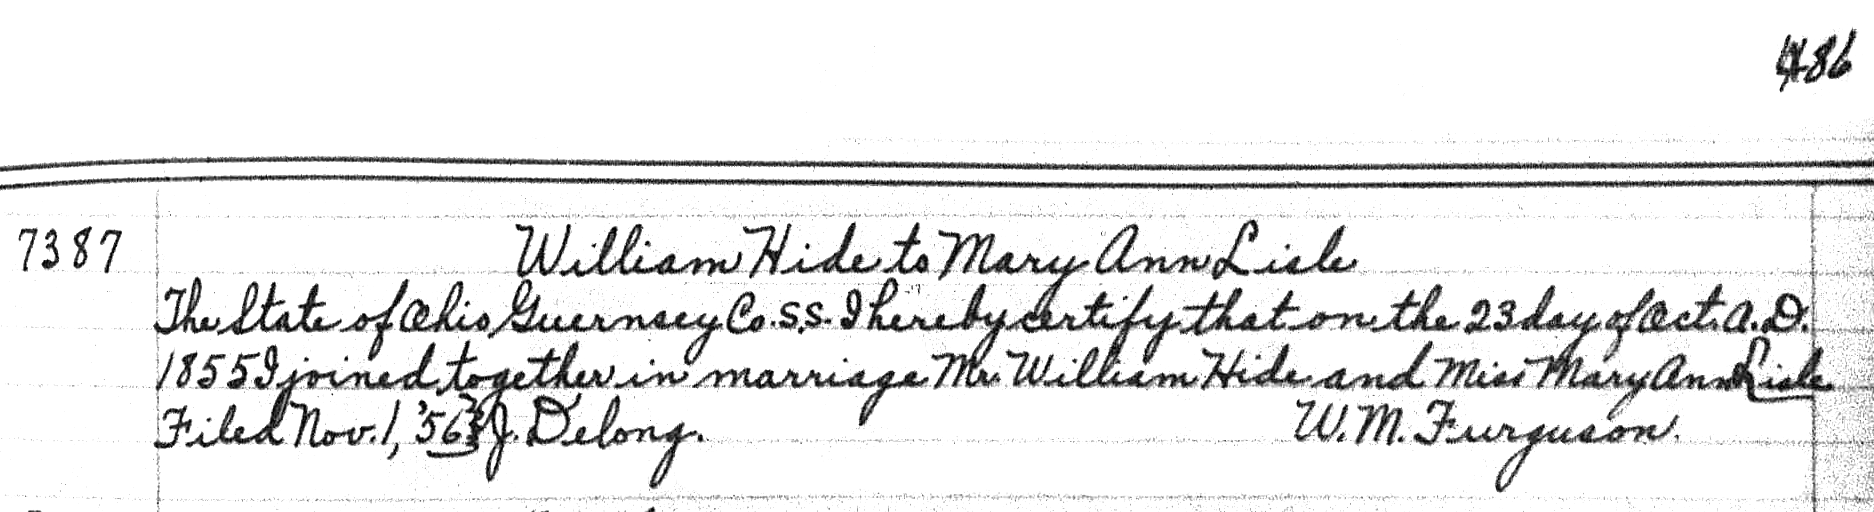 486
7387
William Hide to Mary Ann Lisle
The State of Ohio Guernsey Co. S.S. I hereby certify that on the 23 day of Oct. A.D.
1855 I joined together in marriage Mr. William Hide and Miss Mary Ann Lisle
Filed Nov. 1, '56} J. Delong. W. M. Furguson.